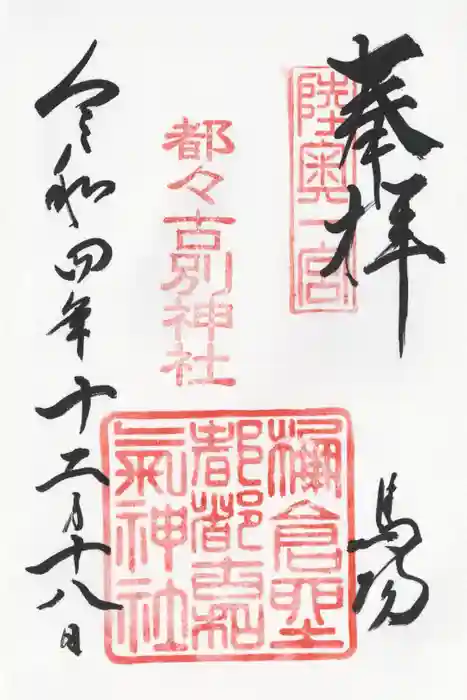 奉拝
陸奥一宮
馬場
都々古別神社
棚倉
都都古和
氣神社
令和四年十二月十八日